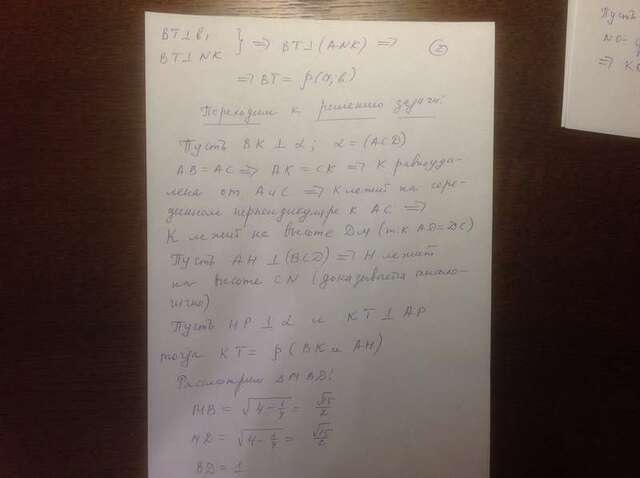 BT⊥b,
BT⊥NK } ⇒ BT⊥(ANK) ⇒
②
⇒ BT = ρ(a;b)
Переходим к решению задачи:
Пусть BK ⊥ α; α = (ACD)
AB = AC ⇒ AK = CK ⇒ K равноуда-
лена от A и C ⇒ K лежит на сере-
динном перпендикуляре к AC ⇒
K лежит на высоте DM (т.к AD = DC)
Пусть AH ⊥ (BCD) ⇒ H лежит
на высоте CN (доказывается анало-
гично)
Пусть HP ⊥ α и KT ⊥ AP
тогда KT = ρ(BK и AH)
Рассмотрим ΔMBD:
MB = √(4 - 1/4) = √15/2
MD = √(4 - 1/4) = √15/2
BD = 1
Пусть
NO-
⇒